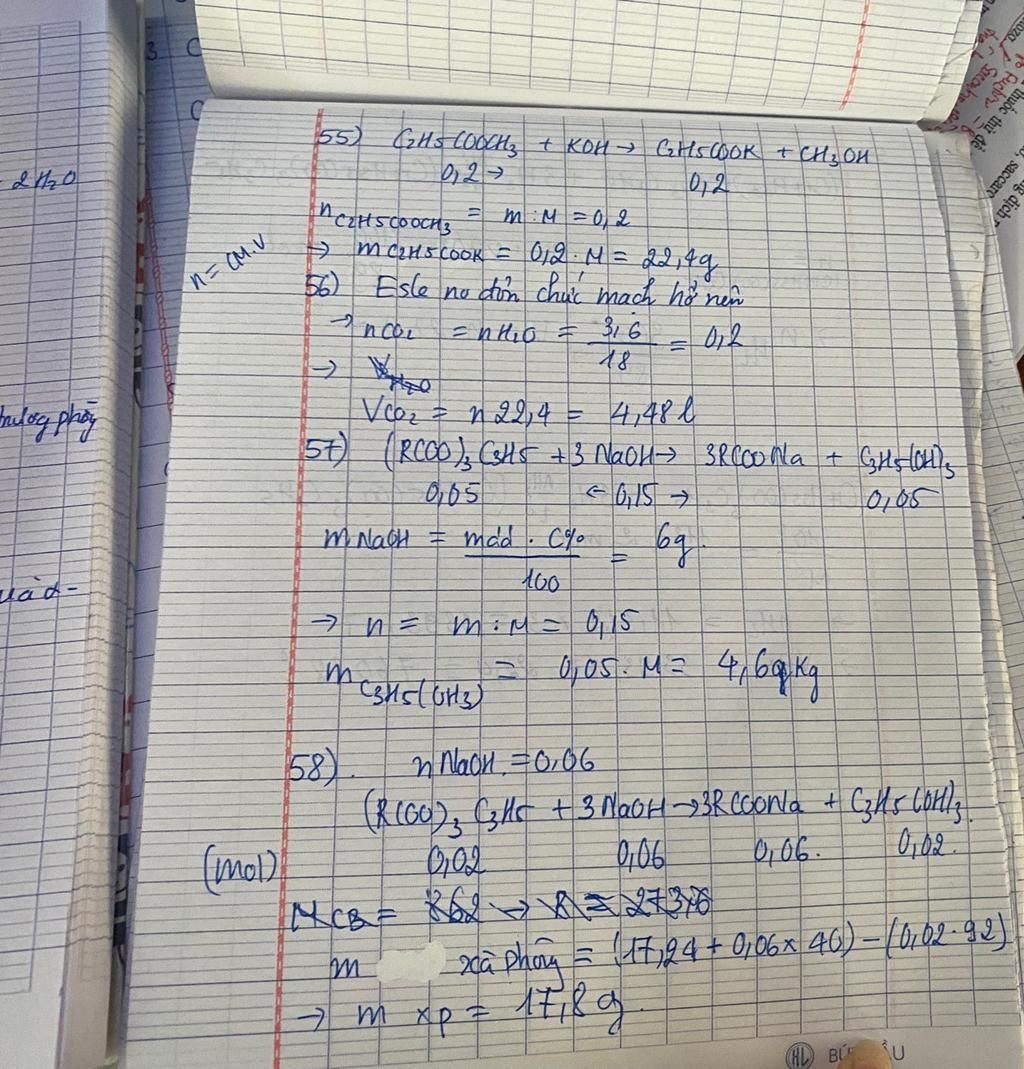 55) C2H5COOCH3 + KOH → C2H5COOK + CH3OH
0,2 → 0,2
nC2H5COOCH3 = m : M = 0,2
n = CM.V
→ mC2H5COOK = 0,2 . M = 22,4g
56) Este no đơn chức mạch hở nên
→ nCO2 = nH2O = 3,6 / 18 = 0,2
→
VCO2 = n 22,4 = 4,48 l
57) (RCOO)3 C3H5 + 3 NaOH → 3RCOONa + C3H5(OH)3
0,05 ← 0,15 → 0,05
mNaOH = mdd . C% / 100 = 6g.
→ n = m : M = 0,15
mC3H5(OH3) = 0,05 . M = 4,6 Kg
58). nNaOH = 0,06
(RCOO)3 C3H5 + 3 NaOH → 3RCOONa + C3H5(OH)3.
(mol) 0,02 0,06 0,06. 0,02.
MCB = 862 → R = 273,6
m xà phòng = (17,24 + 0,06 x 40) - (0,02 . 92)
→ m xp = 17,8 g.
2H2O
HL